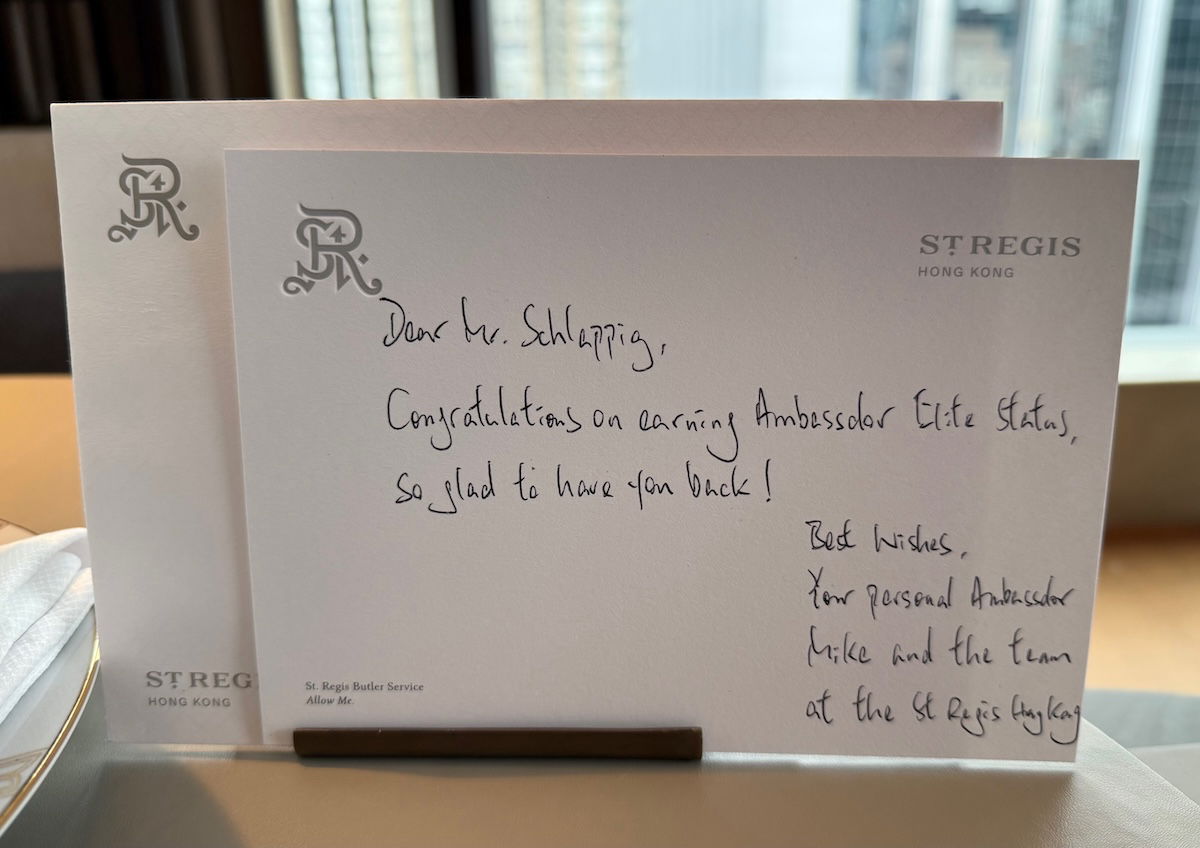 ST. REGIS
HONG KONG
Dear Mr. Schlappig,
Congratulations on earning Ambassdor Elite Status,
so glad to have you back!
Best Wishes,
Your personal Ambassdor
Mike and the team
at the St Regis HongKong
St. Regis Butler Service
Allow Me.
ST. REG
HONG KONG